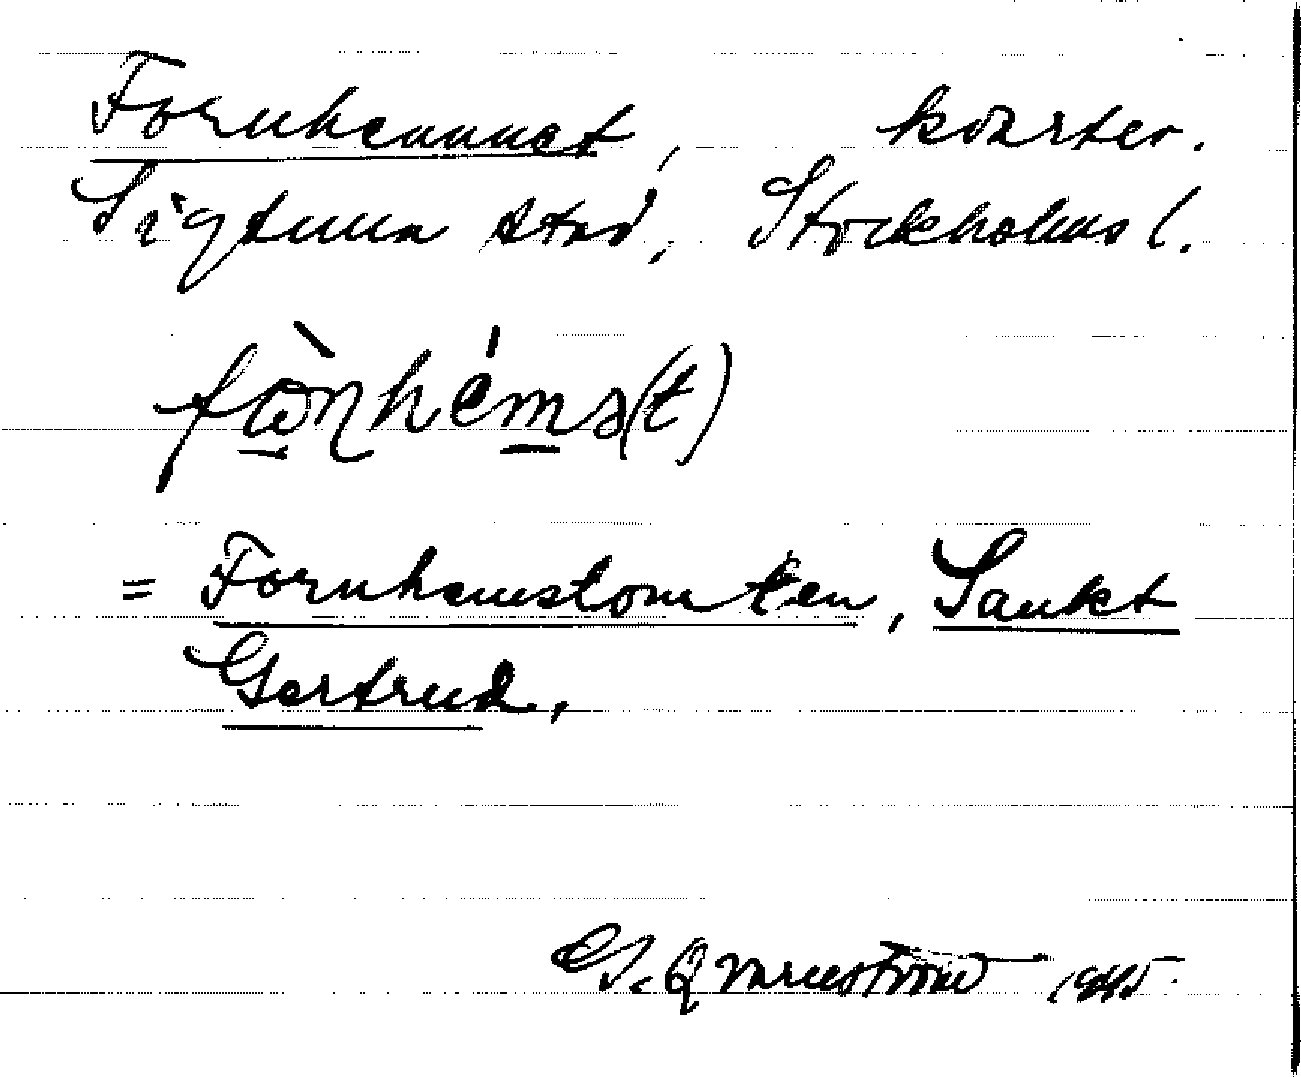 Fornhemmet, kvarter.
Sigtuna stad, Stockholms l.
= Fornhemstomten, Sankt
Gertrud,
G. Qvarnström 1945.